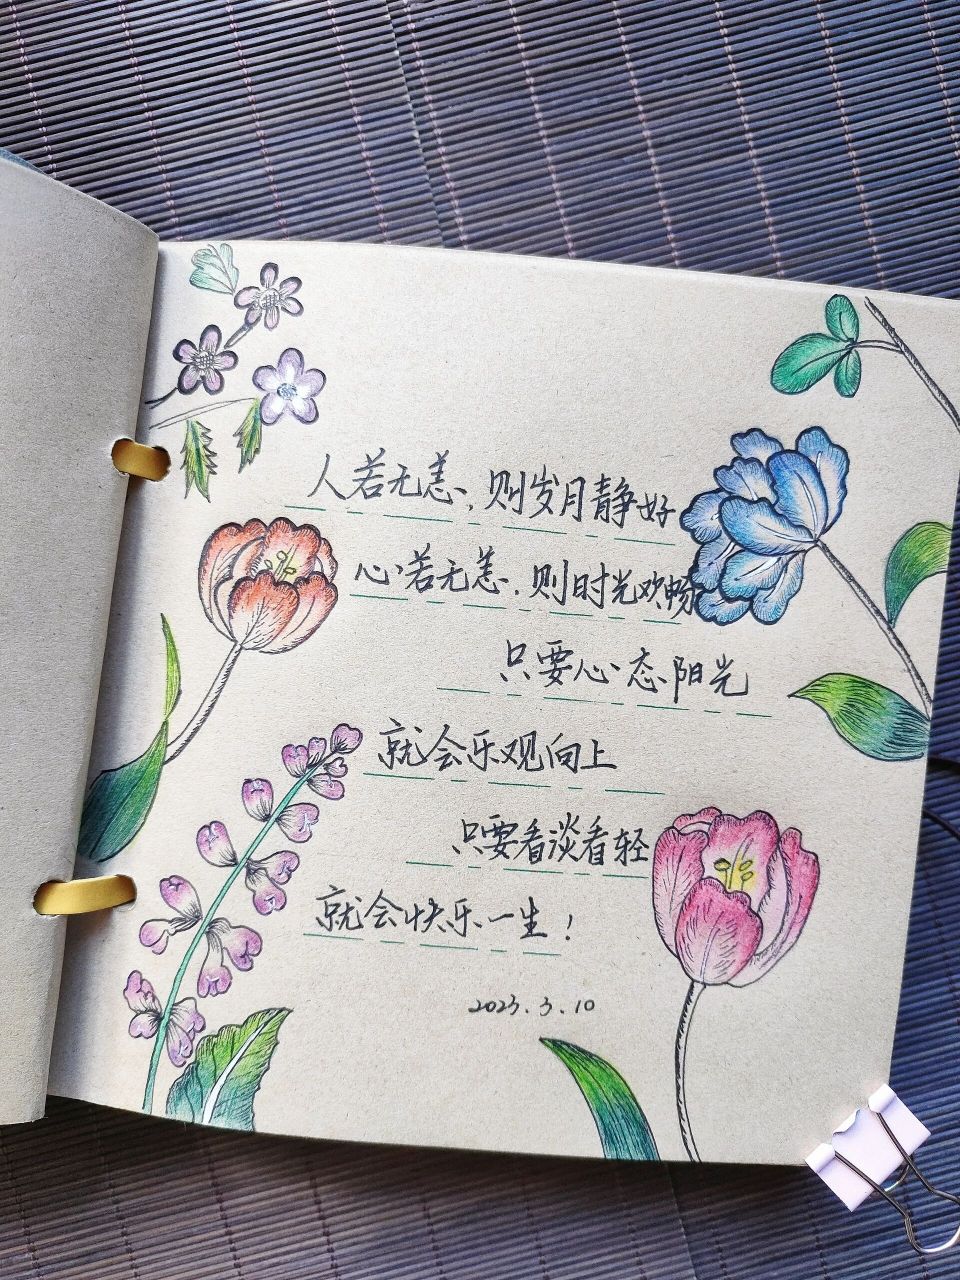 人若无恙，则岁月静好
心若无恙，则时光欢畅
只要心态阳光
就会乐观向上
只要看淡看轻
就会快乐一生！
2023.3.10